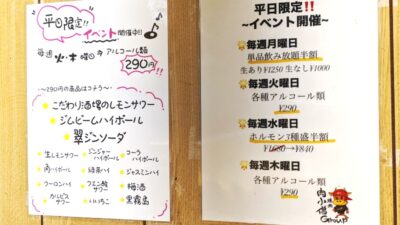 平日限定!!
イベント開催中!!
毎週 火・木 曜日 アルコール類
290円!!
~290円の商品はコチラ~
こだわり酒場のレモンサワー
ジムビームハイボール
翠ジンソーダ
生レモンサワー
ジンジャーハイボール
コーラハイボール
角ハイボール
緑茶ハイ
ジャスミンハイ
ウーロンハイ
クエン酸サワー
梅酒
カルピスサワー
いいちこ
黒霧島
平日限定!!
~イベント開催~
毎週月曜日
単品飲み放題半額
生あり¥1250 生なし¥1000
毎週火曜日
各種アルコール類
¥290
毎週水曜日
ホルモン7種盛半額
¥1680→¥840
毎週木曜日
各種アルコール類
¥290
肉小僧
Group